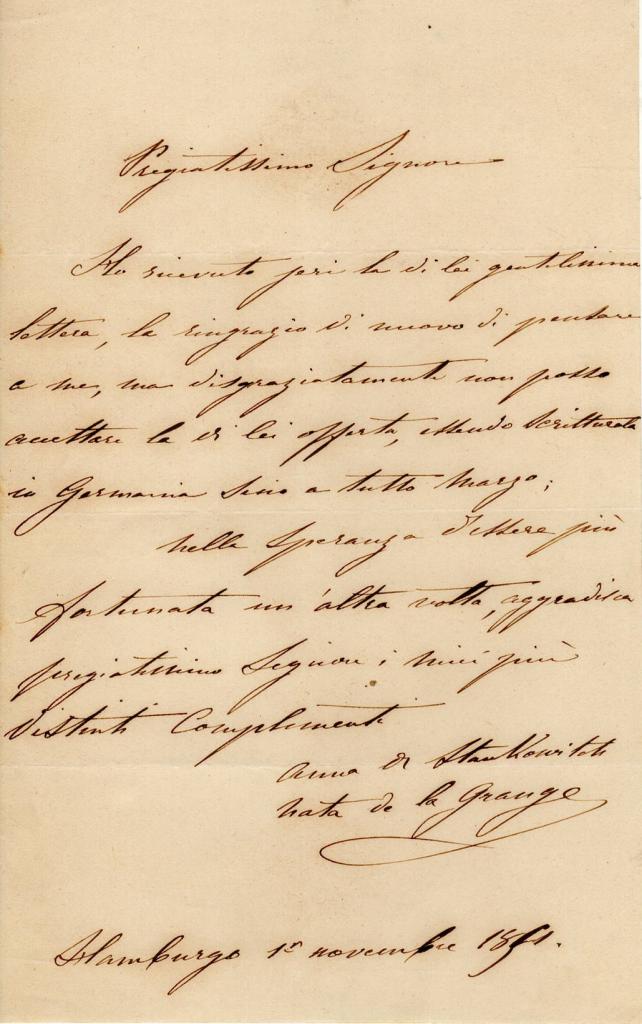 Pregiatissimo Signore
Ho ricevuto jeri la di lei gentilissima
lettera, la ringrazio di nuovo di pensare
a me, ma disgraziatamente non posso
accettare la di lei offerta, essendo Scritturata
in Germania sino a tutto Marzo;
nella Speranza d'essere più
fortunata un'altra volta, aggradisca
pregiatissimo Signore i miei più
Distinti Complimenti
Anna di Stankowitch
nata de la Grange
Hamburgo 1º novembre